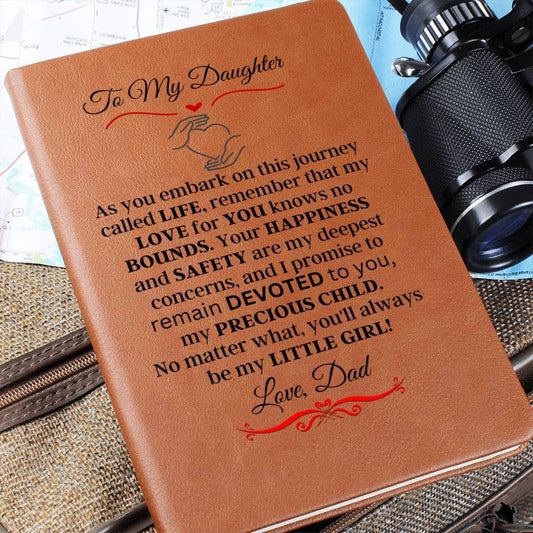 To My Daughter
As you embark on this journey
called LIFE, remember that my
LOVE for YOU knows no
BOUNDS. Your HAPPINESS
and SAFETY are my deepest
concerns, and I promise to
remain DEVOTED to you,
my PRECIOUS CHILD.
No matter what, you'll always
be my LITTLE GIRL!
Love, Dad